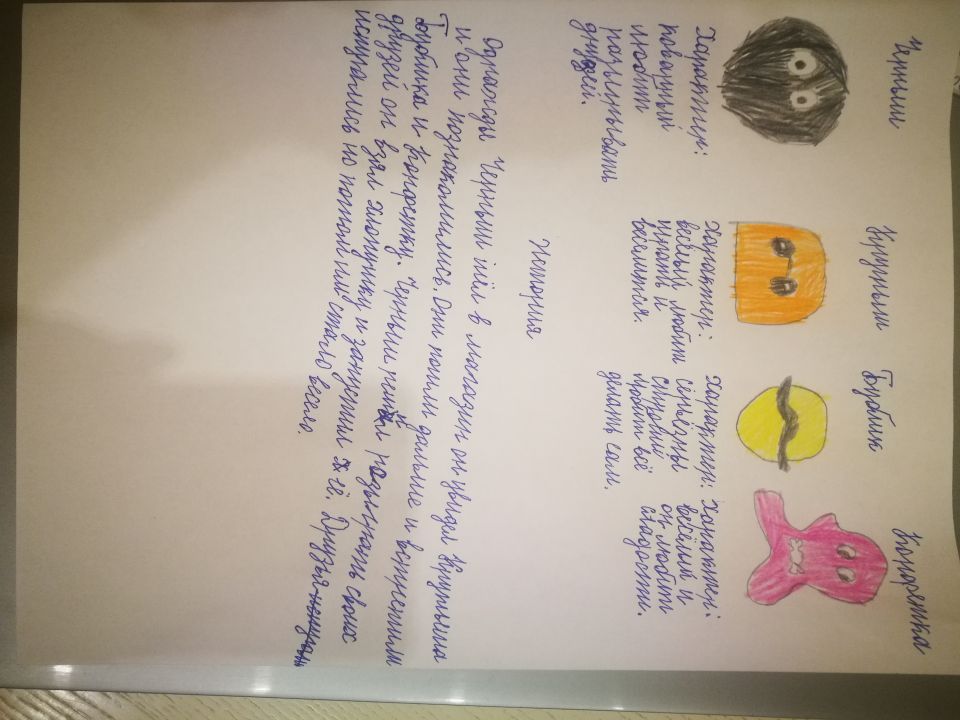 Черныш
Бублик
Конфетка
Характер:
коварный
любит
разыгрывать
друзей.
Характер:
весёлый любит
играть и
веселится.
Характер:
серьёзны
суровый
любит всё
делать сам.
Характер:
весёлый и
он любит
сладости.
История
Однажды Черныш шёл в магазин он увидел
и они познакомились. Они пошли дальше и встретили
Бублика и Конфетку. Черныш решил разыграть своих
друзей он взял хлопушки и запустил её. Друзья
испугались но потом им стало весело.